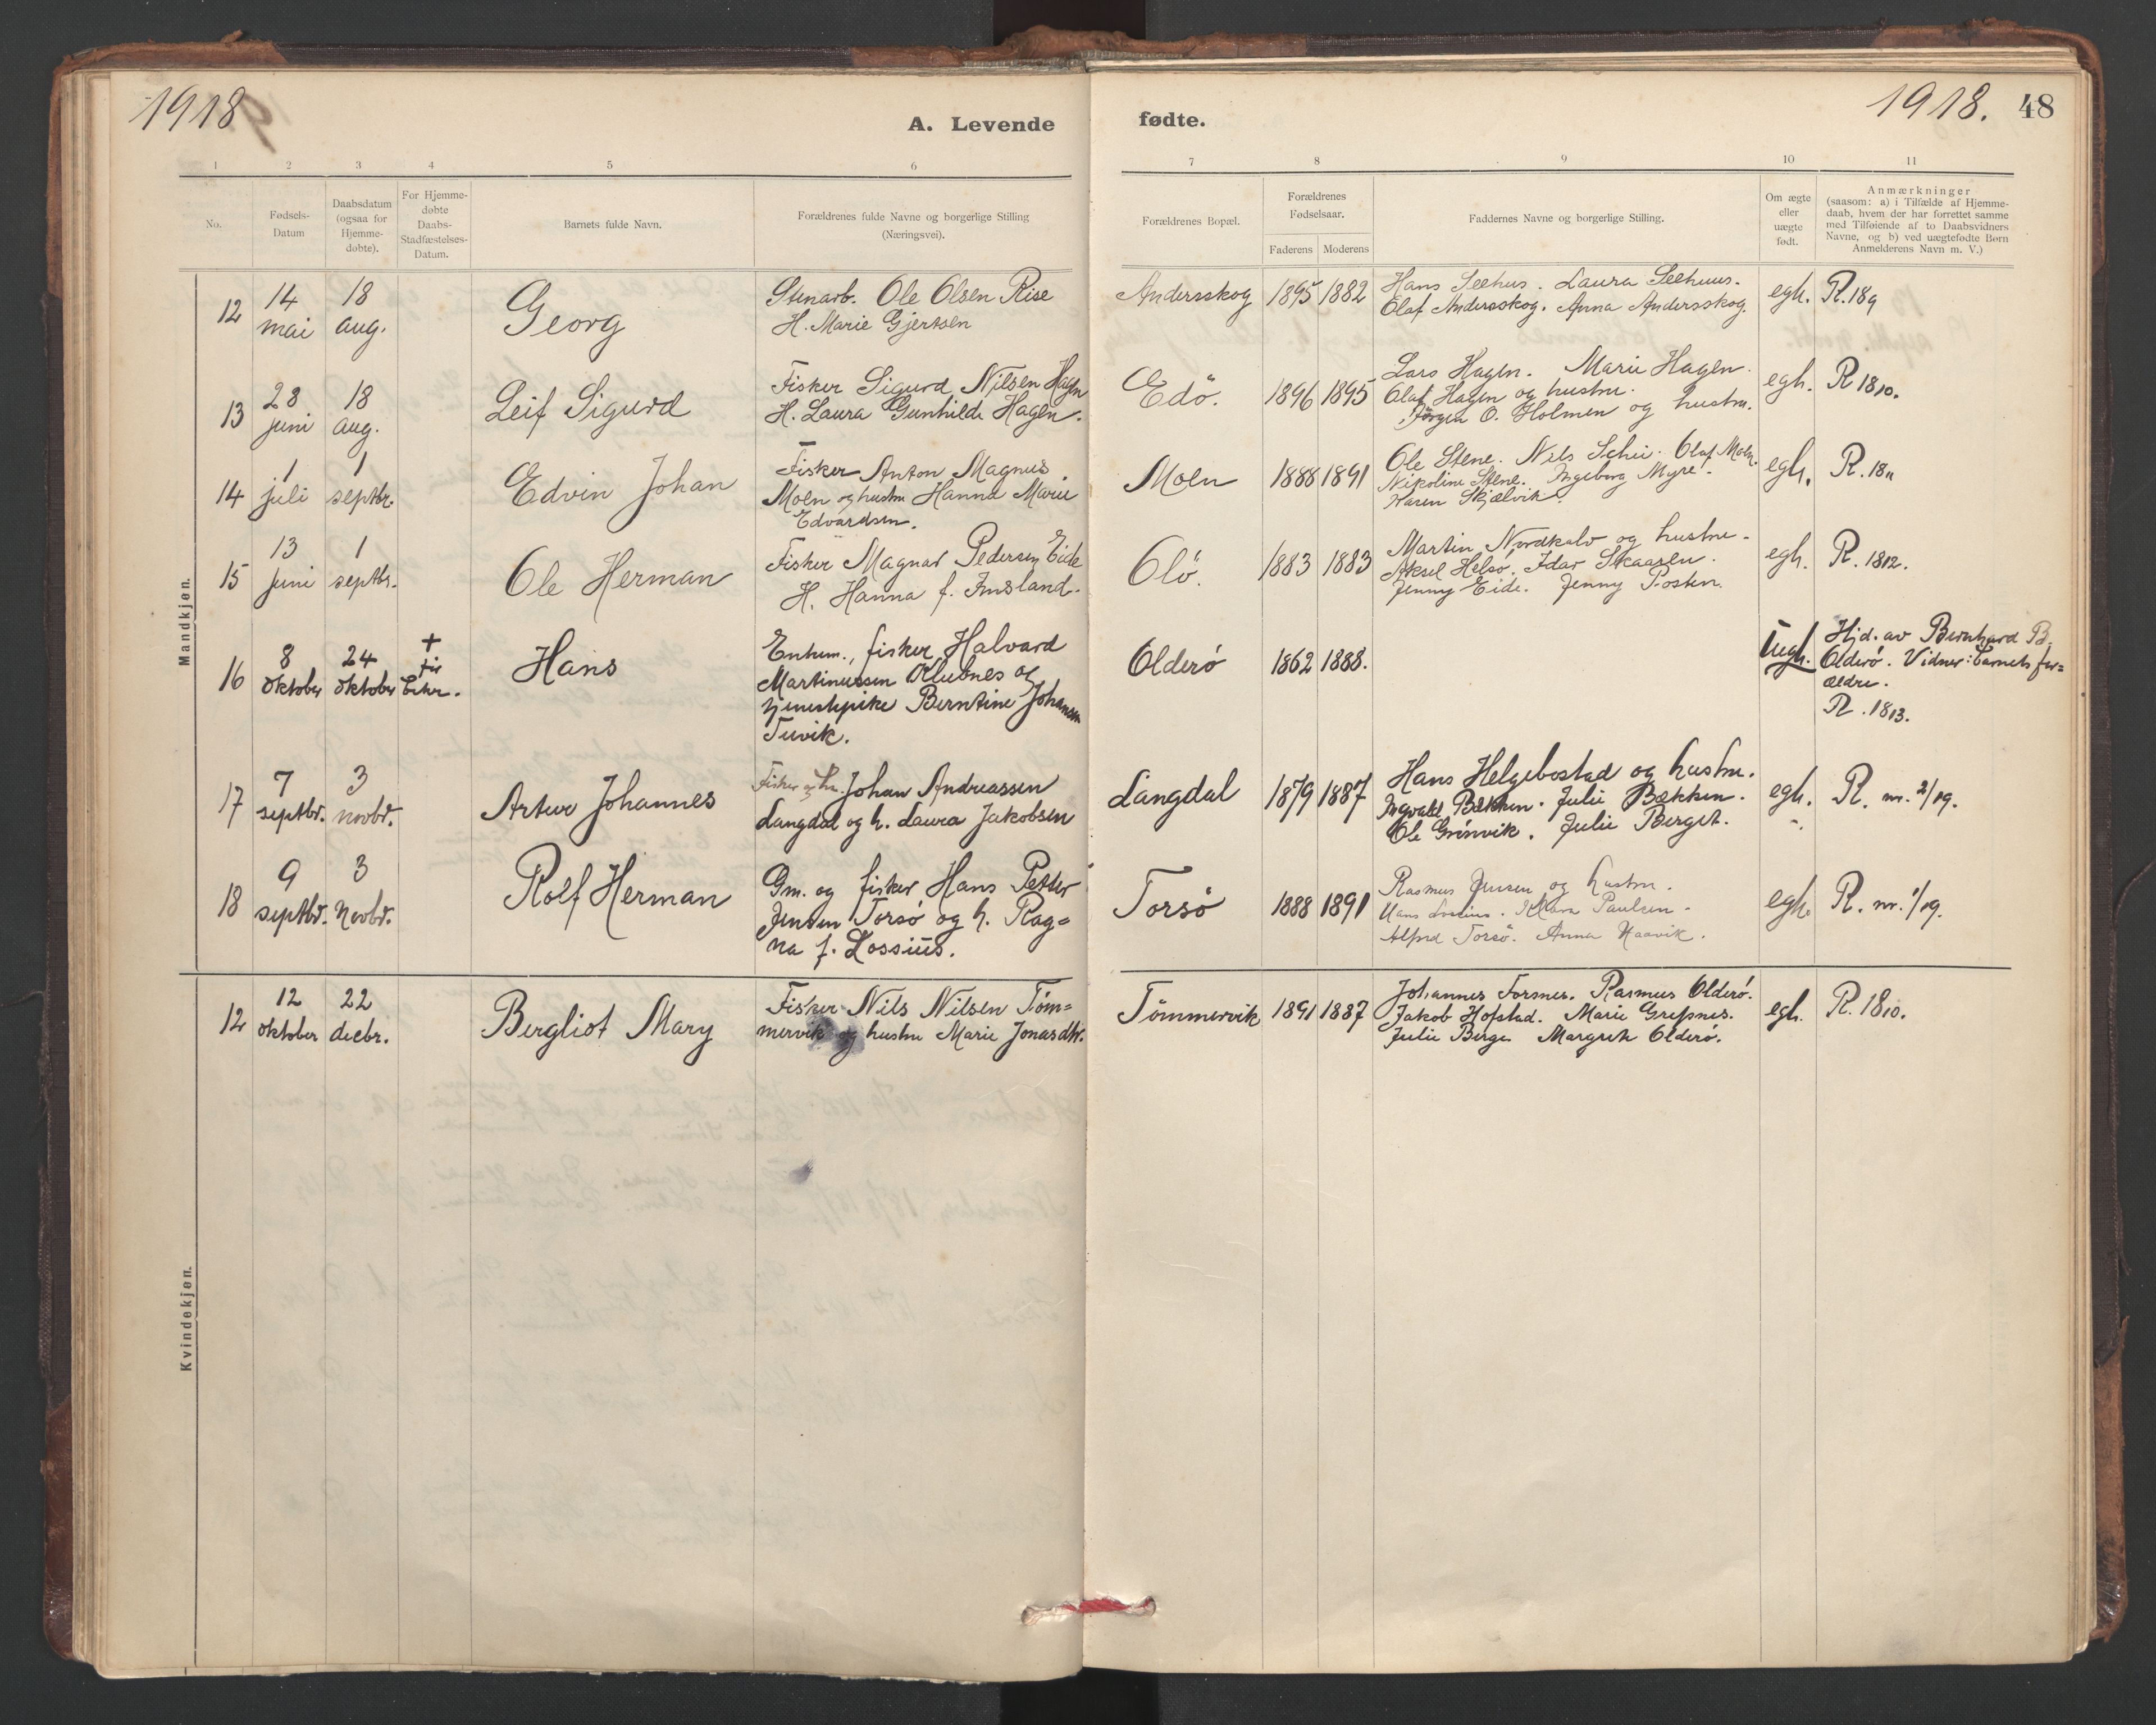 1918
A. Levende
1 2 3 4 5 6
No.
Fødsels-
Datum
Daabsdatum
(ogsaa for
Hjemme-
døbte).
For Hjemme-
døbte
Daabs-
Stadfæstelses-
Datum.
Barnets fulde Navn.
Forældrenes fulde Navne og borgerlige Stilling
(Næringsvei).
Mandkjøn.
12
14
mai
18
aug.
Georg
Stenarb. Ole Olsen Rise
H. Marie Gjertsen
13
28
juni
18
aug.
Leif Sigurd
Fisker Sigurd Nilsen Hagen
H. Laura Gunhilde Hagen.
14
1
juli
1
septbr.
Edvin Johan
Fisker Anton Magnus
Moen og hustru Hanna Marie
Edvardsen.
15
13
juni
1
septbr.
Ole Herman
Fisker Magnar Pedersen Eide
H. Hanna f. Imsland.
16
8
oktober
24
oktober
+
før
Hans
Enkem., fisker Halvard
Martinussen og
tjenestepike Berntine Johansen
Tuvik.
17
7
septbr.
3
novbr.
Artur Johannes
Fisker Johan Andreassen
Langdal og h. Laura Jakobsen
18
9
septbr.
3
Novbr.
Rolf Herman
Gm. og fisker Hans Petter
Jensen Torsø og h. Rag=
na f. Lossius.
Kvindekjøn.
12
12
oktober
22
decbr.
Bergliot Mary
Fisker Nils Nilsen Tøm=
mervik og hustru Marie Jonasdtr.
1918. 48
fødte.
7 8 9 10 11
Forældrenes Bopæl.
Forældrenes
Fødselsaar.
Faderens Moderens
Faddernes Navne og borgerlige Stilling.
Om ægte
eller
uægte
født.
Anmærkninger
(saasom: a) i Tilfælde af Hjemme-
daab, hvem der har forrettet samme
med Tilføiende af to Daabsvidners
Navne, og b) ved uægtefødte Børn
Anmelderens Navn m. V.)
Andersskog 1895 1882
Hans Seehus. Laura Seehuus.
Olaf Andersskog. Anna Andersskog.
egh. R. 189
Edö. 1896 1895
Lars Hagen. Marie Hagen.
Olaf Hagen og hustru.
Jörgen O. Holmen og hustru.
egh. R 1810.
Moen 1888 1891
Ole Stene. Nils Olaf Moen.
Nikoline Stene. Ingeborg Myre.
Karen Skjælvik.
egh. R. 1811
Olø. 1883 1883
Martin Nordkalv og hustru.
Aksel Helsø. Idar Skaaren.
Jenny Eide. Jenny Posten.
egh. R. 1812.
Olderø 1862 1888.
Uegh.
Hjd. av Bernhard B.
Olderø. Vidner: Barnets for=
ældre.
R. 1813.
Langdal 1879 1887
Hans Helgebostad og hustru.
Ingvald Bækken. Julie Bækken.
Ole Grønvik. Julie Berget.
egh. R. nr. 2/19.
Torsø 1888 1891
Rasmus Jensen og hustru.
Hans Klara Paulsen.
Alfred Torsö. Anna Naavik.
egh. R. nr. 1/19.
Tömmervik 1891 1887
Johannes Forsnes. Rasmus Olderø.
Jakob Hofstad. Marie Grepnes.
Julie Berge Margrete Olderø.
egh. R. 1810.